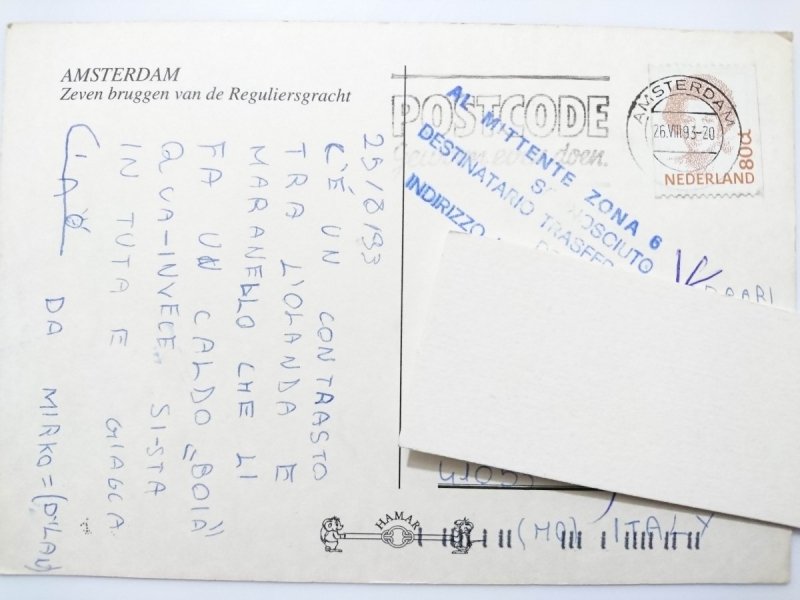 AMSTERDAM
Zeven bruggen van de Reguliersgracht
25/8/93
C'É UN CONTRASTO
TRA L'OLANDA E
MARANELLO CHE LI
FA UN CALDO "BOIA"
QUA-INVECE SI-STA
IN TUTA E GIACCA
Ciao
DA MIRKO=(DYLAN)
POSTCODE
doen.
AMSTERDAM
26.VIII.93-20
80c
NEDERLAND
AL MITTENTE ZONA 6
SCONOSCIUTO
DESTINATARIO TRASFE
INDIRIZZO
HAMAR
(MO) ITALY